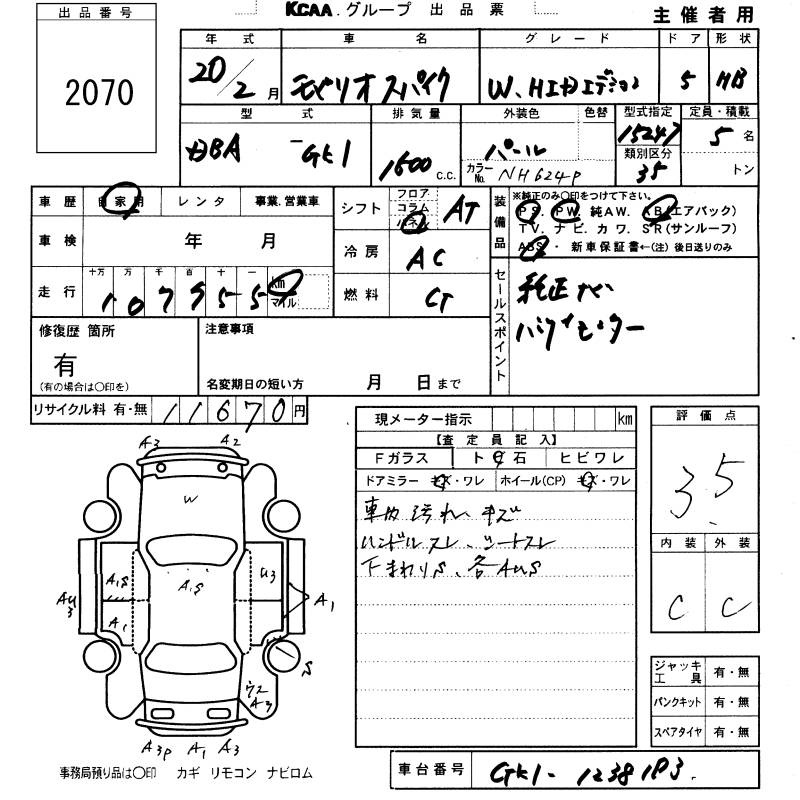 KCAA.グループ 出品票
主催者用
出品番号
2070
年式 車名 グレード ドア 形状
20/2月 モビリオスパイク W.HIDエディション 5 HB
型式 排気量 外装色 色替 型式指定 定員・積載
DBA - GK1 1500 c.c. パール 15247 5名
カラーNo. NH624P 類別区分 35 トン
車歴 自家用 レンタ 事業.営業車
車検 年 月
走行 十万 万 千 百 十 一 km マイル
107955
シフト フロア コラム パネル AT
冷房 AC
燃料
装備品
※純正のみ○印をつけて下さい。
PS. PW. 純AW. AB(エアバック)
TV. ナビ. カワ. SR(サンルーフ)
ABS・新車保証書←(注)後日送りのみ
セールスポイント
純正ナビ
バックモニター
修復歴 箇所
有
(有の場合は○印を)
注意事項
名変期日の短い方 月 日まで
リサイクル料 有・無 11670円
現メーター指示 km
【査定員記入】
Fガラス ト 石 ヒビワレ
ドアミラー キズ・ワレ ホイール(CP) キズ・ワレ
車内汚れ、キズ
ハンドルスレ、シートスレ
下まわりS、各AUS
評価点
3.5
内装 外装
C C
ジャッキ工具 有・無
パンクキット 有・無
スペアタイヤ 有・無
A3 A2
W
A,S
A,S U3
AU3 A1 A1
S
A3
A3P A1 A3
事務局預り品は○印 カギ リモコン ナビロム
車台番号 GK1-1238183